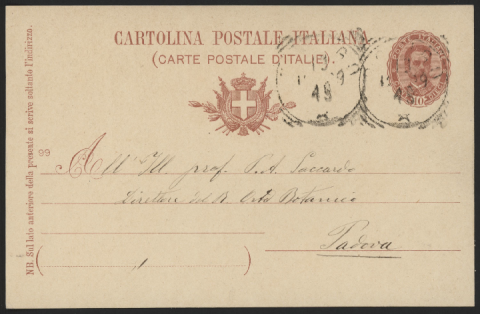 CARTOLINA POSTALE ITALIANA
(CARTE POSTALE D'ITALIE)
NB. Sul lato anteriore della presente si scrive soltanto l'indirizzo.
99
All' Ill prof. P. A. Saccardo
Direttore del R. Orto Botanico
Padova